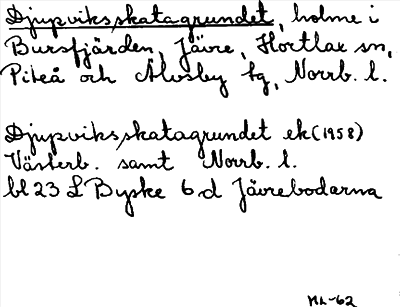 Djupviksskatagrundet, holme i
Bursfjärden, Jävre, Hortlax sn,
Piteå och Älvsby tg, Norrb. l.
Djupviksskatagrundet ek (1958)
Västerb. samt Norrb. l.
bl 23 L Byske 6 d Jävrebodarna
HL-62